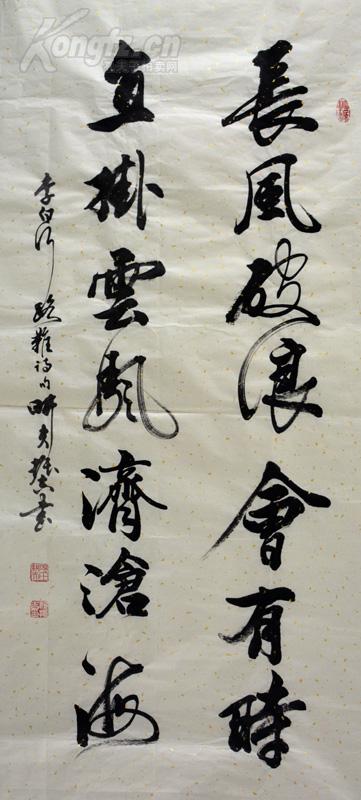 長風破浪會有時
直掛雲帆濟滄海
李白行路難詩句畊夫書
Kongfz.cn